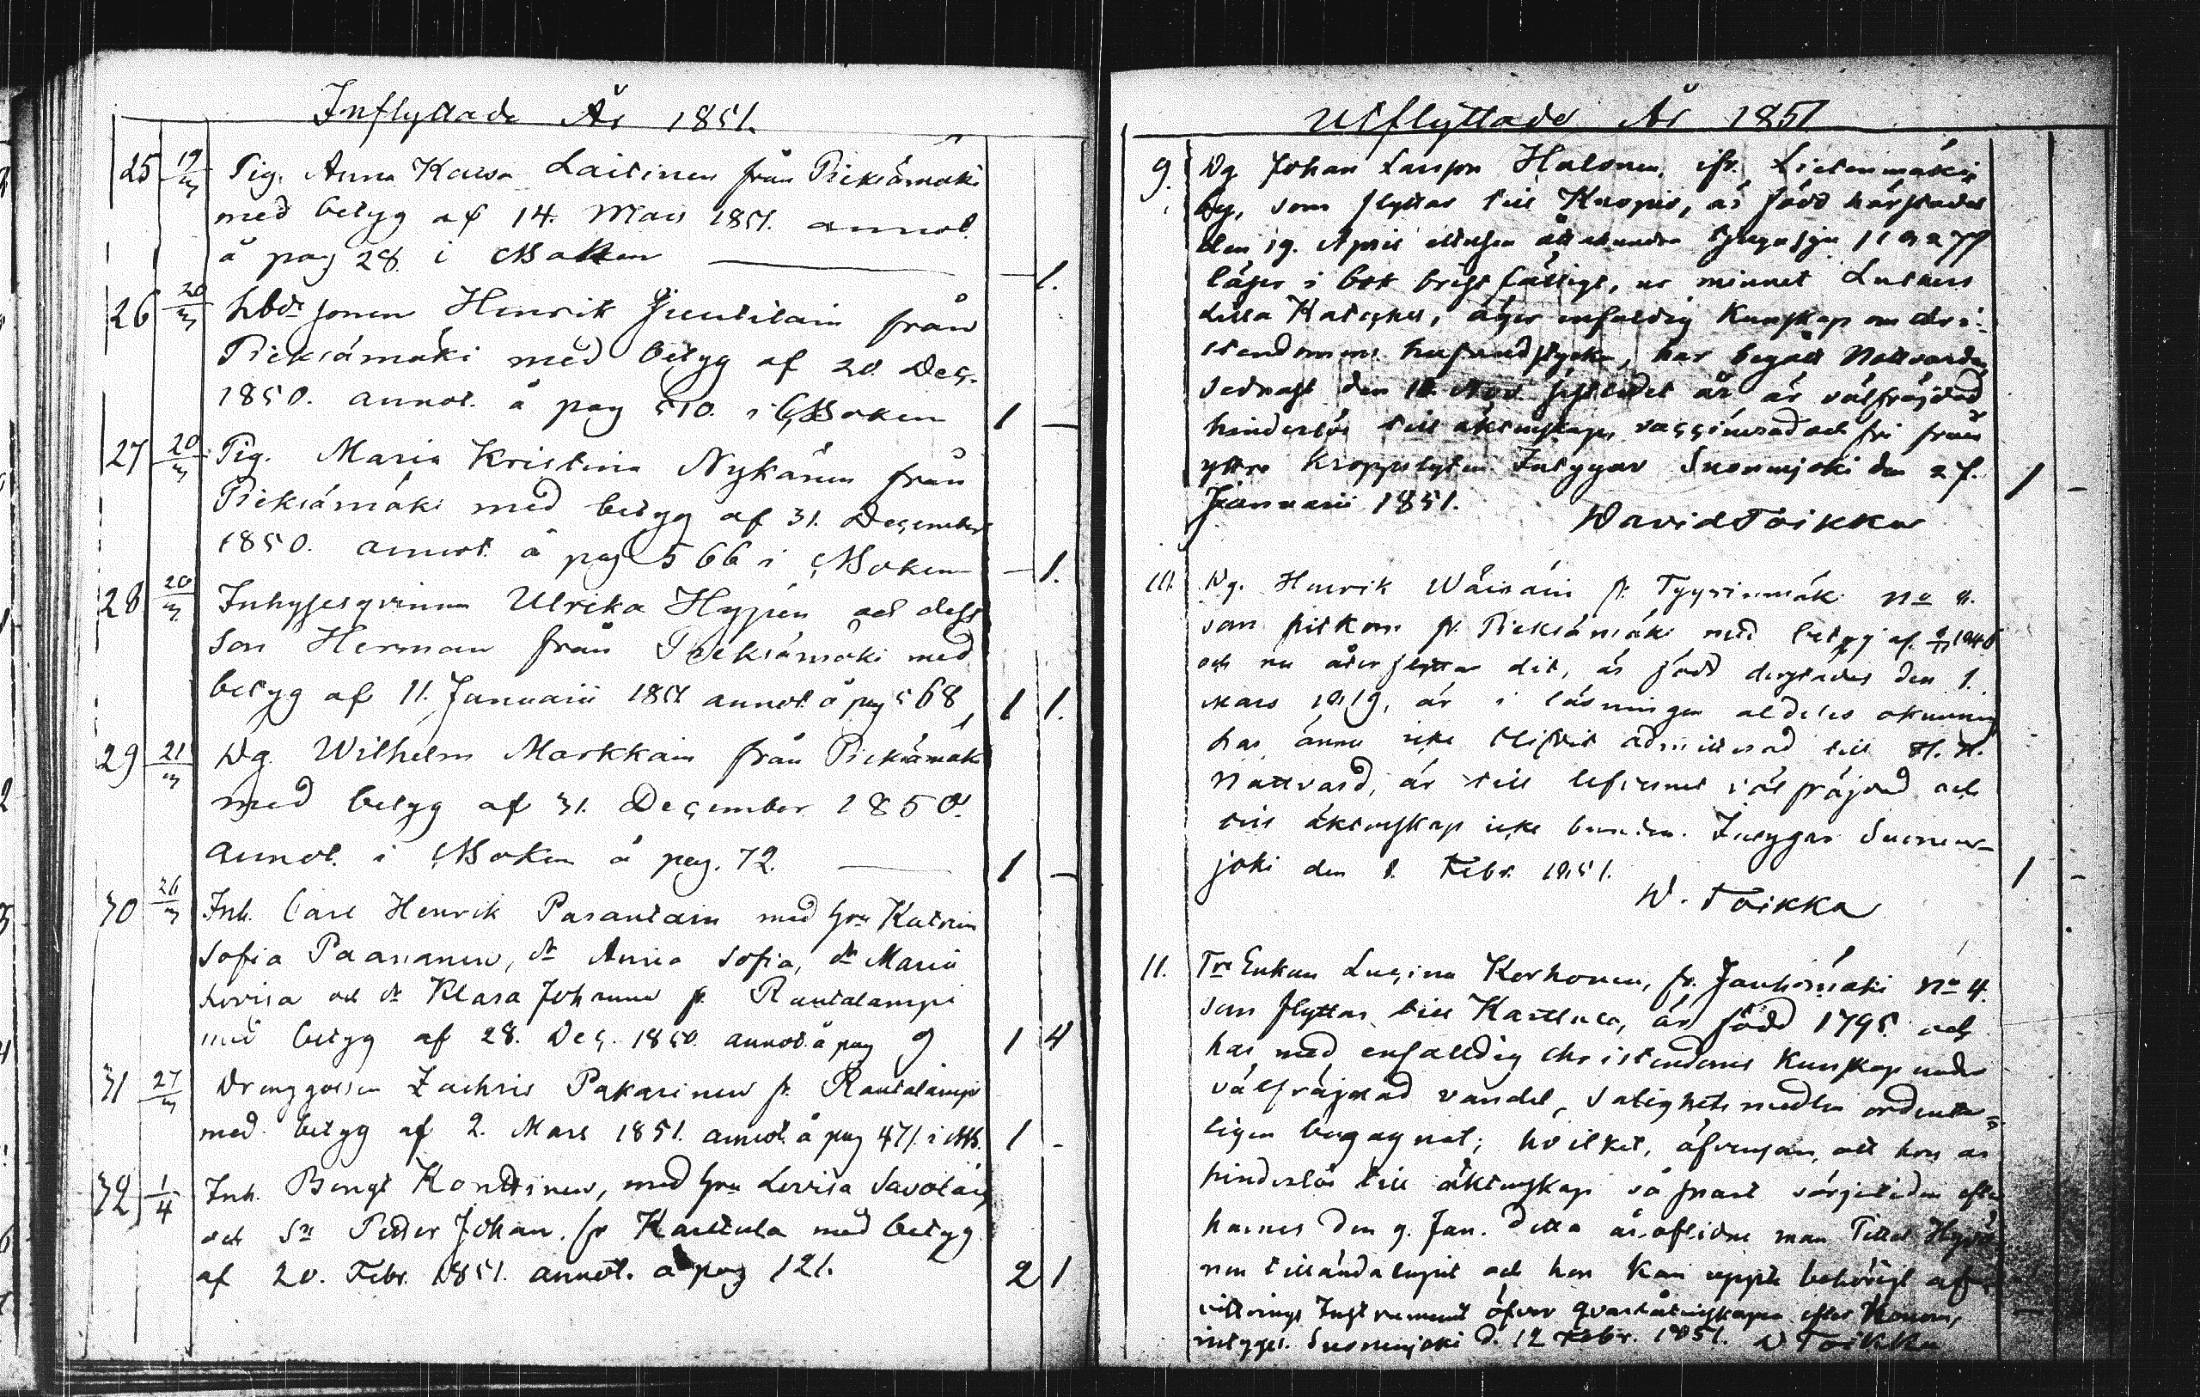 Inflyttade År 1851.
25 19/3 Pig. Anna Kaisa Laitinen från Pieksämäki
med betyg af 14. Mars 1851. annot.
å pag 28. i MBoken — 1.
26 20/3 Henrik från
Pieksämäki med betyg af 20 Dec.
1850. annot. å pag 510. i Boken 1 —
27 20/3 Pig. Maria Kristina Nykänen från
Pieksämäki med betyg af 31. December
1850. annot. å pag 566 i MBoken — 1.
28 20/3 Inhysesqvinnan Ulrika Hyppén och dess
son Herman från Pieksämäki med
betyg af 11. Januarii 1851 annot å pag 568 1 1.
29 21/3 Dg. Wilhelm Markkain från Pieksämäki
med betyg af 31. December 1850.
annot. i MBoken å pag. 72. 1 —
30 26/3 Inh. Carl Henrik Parantain med hru Katrin
Sofia Paananen, dr Anna Sofia, dr Maria
Lovisa och dr Klara Johanna fr. Rautalampi
med betyg af 28. Dec. 1850. annot. å pag 9 1 4
31 27/3 Drenggossen Zachris Pakarinen fr. Rautalampi
med betyg af 2. Mars 1851. annot. å pag 471. i MB. 1 -
32 1/4 Inh. Bengt Konttinen, med hru Lovisa Savolain
och Sn Petter Johan fr Karttula med betyg
af 20. Febr. 1851. annot. å pag 121. 2 1
Utflyttade År 1851
9. Dg Johan Larsson Halonen, ifr. Lietenmäki
by, som flyttar till Kuopio, är född härstädes
den 19. April adertonhundra tjugusju 1827
läser i bok bristfälligt, ur minnet Luthers
Lilla Kateches, äger enfaldig kunskap om Chri-
stendomens hufvudstycken, har begått Nattvarden
sednast den Nov sistledet år är välfrejdad
hinderlös till äktenskap, vaccinerad och fri från
yttre kroppslyten. Intygar Suonenjoki den 27.
Januarii 1851. 1 -
David Toikka
10. Dg. Henrik Wäisäin fr. Tyyrinmäki No 8.
som hitkom fr. Pieksämäki med betyg af
och nu återflyttar dit, är född derstädes den 1.
Mars 1819, är i läsningen aldeles okunnig
har ännu icke blifvit admitterad till H. H.
Nattvard, är till lefvernet välfräjdad och
till äktenskap icke bunden. Intygar Suonen-
joki den 8. Febr. 1851. 1 -
D. Toikka
11. Enkan Lucina Korhonen, fr. Jauhomäki No 4.
som flyttar till Karttula, är född 1795. och
har med enfaldig christendoms kunskap under
välfräjdad vandel, Salighetsmedlen ordente-
ligen begagnat; hvilket, äfvensom, att hon är
hinderlös till äktenskap så snart sörjetiden efter
hennes den 9. Jan. detta år aflidne man Petter
nen tilländalupit och hon kan uppte behörigt af-
vittrings Instrument öfver qvarlåtenskapen efter honom,
intygar. Suonenjoki d. 12 Febr. 1851. D Toikka